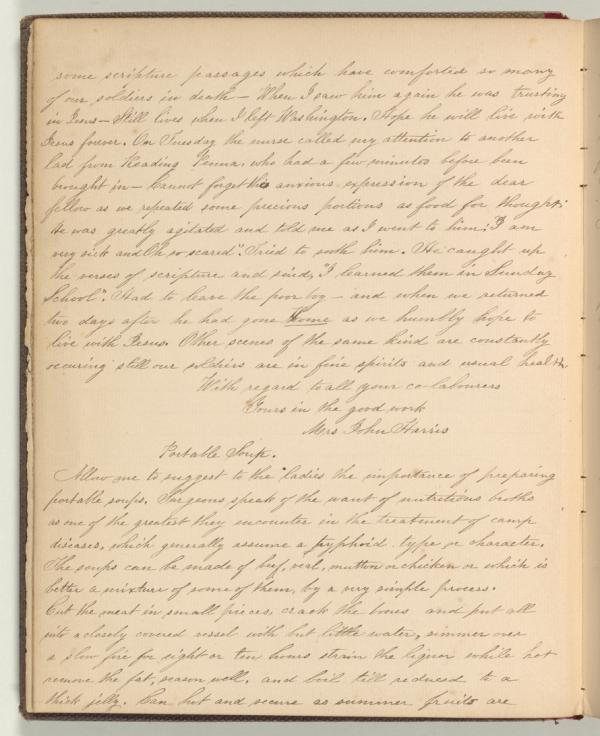 some scripture passages which have comforted so many
of our soldiers in death — When I saw him again he was trusting
in Jesus — Still lives when I left Washington. Hope he will live with
Jesus forever. On Tuesday the nurse called my attention to another
lad from Reading Penna. who had a few minutes before been
brought in — Cannot forget the anxious expression of the dear
fellow as we repeated some precious portions as food for thought;
He was greatly agitated and told me as I went to him; "I am
very sick and Oh so scared". Tried to sooth him. He caught up
the verses of scripture and said, "I learned them in Sunday
School". Had to leave the poor boy — and when we returned
two days after he had gone Home as we humbly hope to
live with Jesus. Other scenes of the same kind are constantly
occuring still our soldiers are in fine spirits and usual health.
With regard to all your co-labourers
Yours in the good work
Mrs John Harris
Portable Soup.
Allow me to suggest to the ladies the importance of preparing
portable soups. Surgeons speak of the want of nutritious broths
as one of the greatest they encounter in the treatment of camp
diseases, which generally assume a typhoid type or character.
The soups can be made of beef, veal, mutton or chicken or which is
better a mixture of some of them, by a very simple process.
Cut the meat in small pieces, crack the bones and put all
into a closely covered vessel with but little water, simmer over
a slow fire for eight or ten hours strain the liquor while hot
remove the fat, season well, and boil till reduced to a
thick jelly. Can hot and secure as summer fruits are